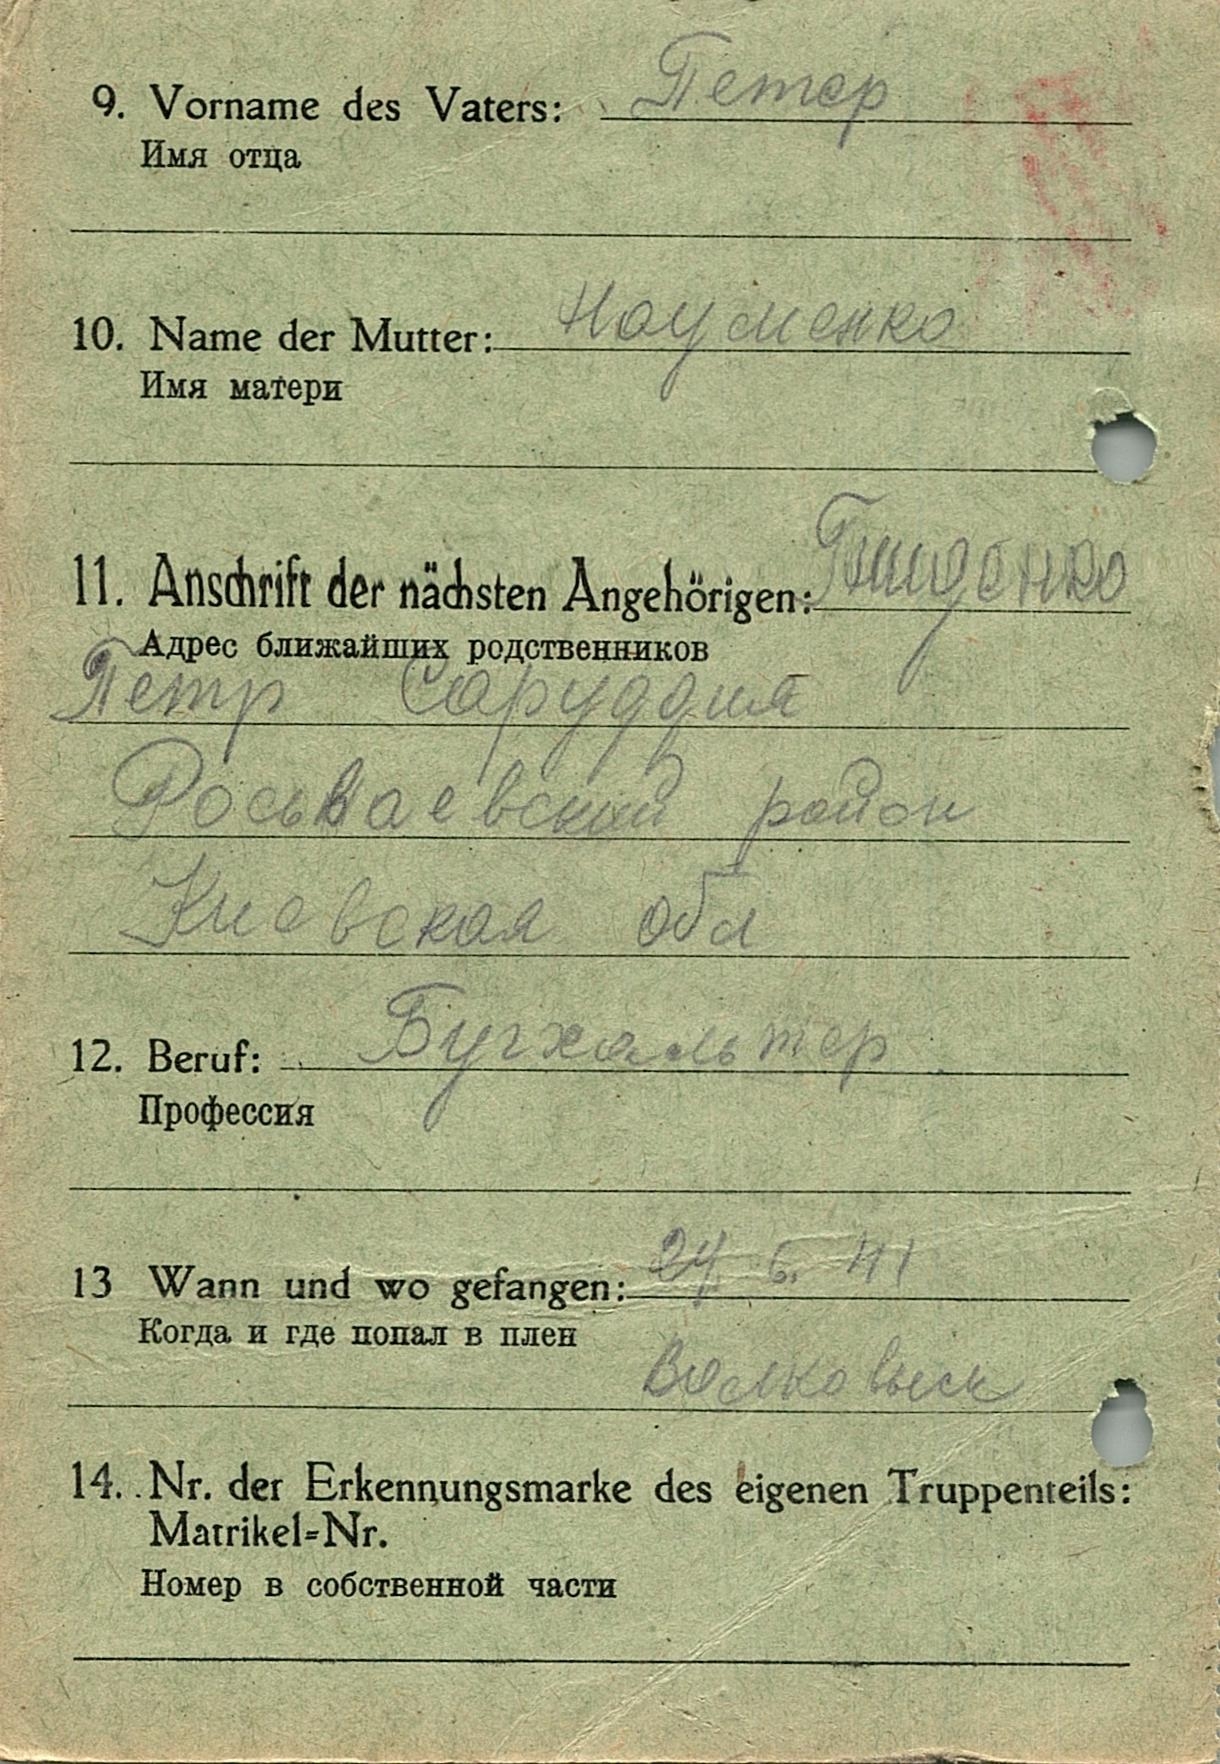 9. Vorname des Vaters: Петер
Имя отца
10. Name der Mutter: Науменко
Имя матери
11. Anschrift der nächsten Angehörigen:
Адрес ближайших родственников
Петр
район
Киевская обл
12. Beruf: Бугхальтер
Профессия
13 Wann und wo gefangen: 24. 6. 41
Когда и где попал в плен
Волковыск
14. Nr. der Erkennungsmarke des eigenen Truppenteils:
Matrikel=Nr.
Номер в собственной части